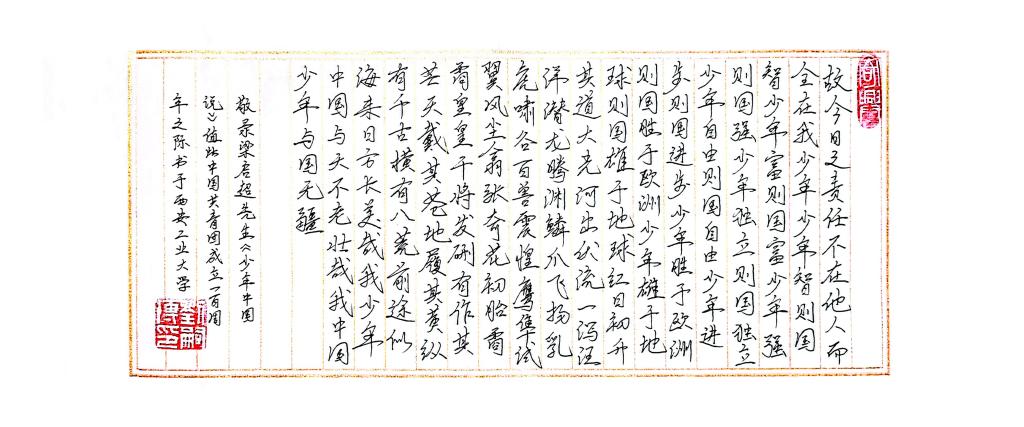 故今日之责任不在他人而
全在我少年少年智则国
智少年富则国富少年强
则国强少年独立则国独立
少年自由则国自由少年进
步则国进步少年胜于欧洲
则国胜于欧洲少年雄于地
球则国雄于地球红日初升
其道大光河出伏流一泻汪
洋潜龙腾渊鳞爪飞扬乳
虎啸谷百兽震惶鹰隼试
翼风尘翕张奇花初胎矞
矞皇皇干将发硎有作其
芒天戴其苍地履其黄纵
有千古横有八荒前途似
海来日方长美哉我少年
中国与天不老壮哉我中国
少年与国无疆
敬录梁启超先生《少年中国
说》值此中国共青团成立一百周
年之际书于西安工业大学